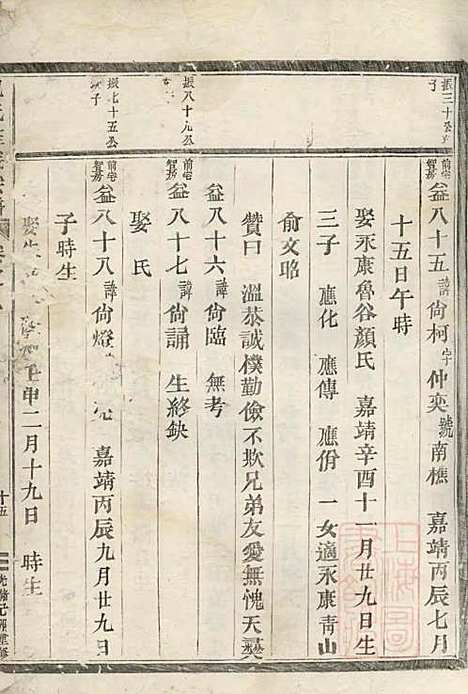 振三十公
子
前宅智房 益八十五 諱尙柯 字仲奕 號南樵 嘉靖丙辰七月
十五日午時
娶永康魯谷顏氏 嘉靖辛酉十一月廿九日生
三子 應化 應傳 應佾 一女適永康靑山
俞文昭
贊曰 溫恭誠樸勤儉不欺兄弟友愛無愧天
益八十六 諱尙臨 無考
振八十九公
子
前宅智房 益八十七 諱尙誦 生終缺
娶氏
振七十五公
次子
前宅智房 益八十八 諱尙燈 嘉靖丙辰九月廿九日
子時生
娶 壬申二月十九日 時生
十五
光緖 重修
上海圖